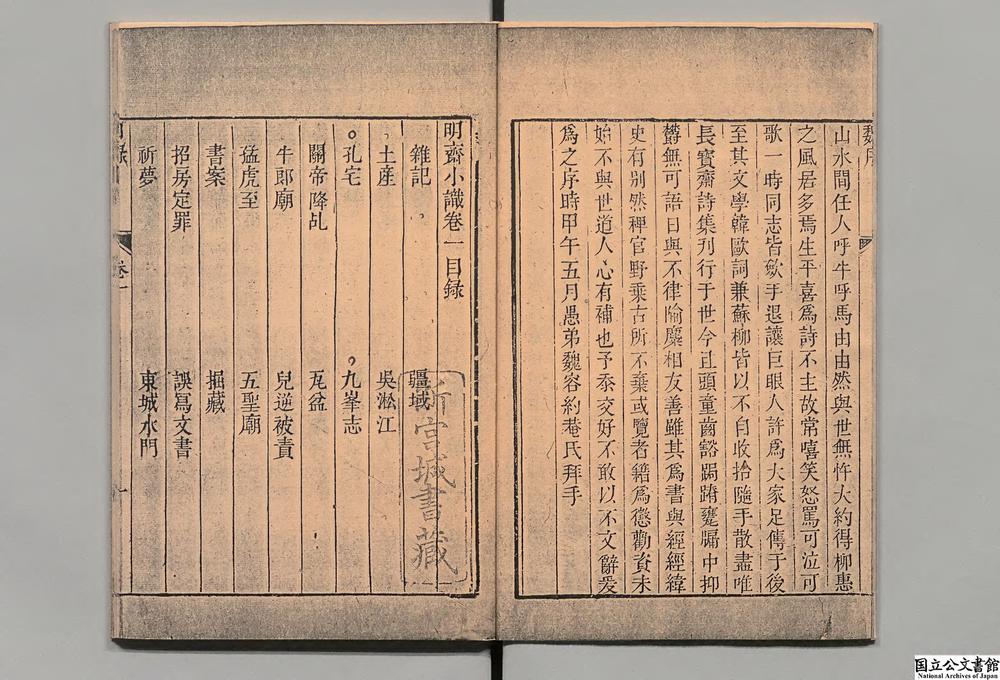 魏序
山水間任人呼牛呼馬由由然與世無忤大約得柳惠
之風居多焉生平喜爲詩不主故常嘻笑怒罵可泣可
歌一時同志皆歛手退讓巨眼人許爲大家足傳于後
至其文學韓歐詞兼蘇柳皆以不自收拾隨手散盡唯
長寶齋詩集刊行于世今且頭童齒豁跼蹐甕牖中抑
欝無可語日與不律隃麋相友善雖其爲書與經經緯
史有別然稗官野乗古所不棄或覽者籍爲懲勸資未
始不與世道人心有補也予忝交好不敢以不文辭爰
爲之序時甲午五月愚弟魏容約菴氏拜手
明齋小識卷一目録
雜記
疆域
土産
吳淞江
孔宅
九峯志
關帝降乩
瓦盆
牛郎廟
兒逆被責
猛虎至
五聖廟
書案
掘藏
招房定罪
誤寫文書
祈夢
東城水門
卷一
一
新宮城書藏
国立公文書館
National Archives of Japan